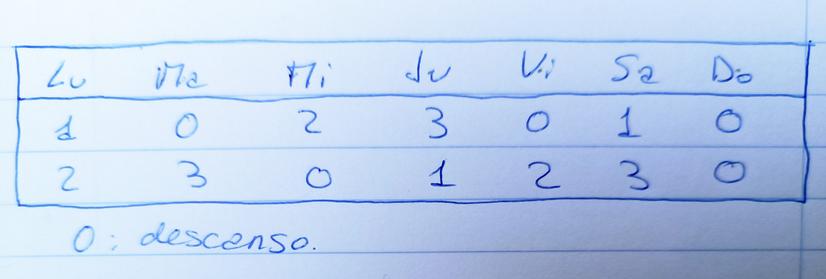 Lu Ma Mi Ju Vi Sa Do
1 0 2 3 0 1 0
2 3 0 1 2 3 0
0: descanso.